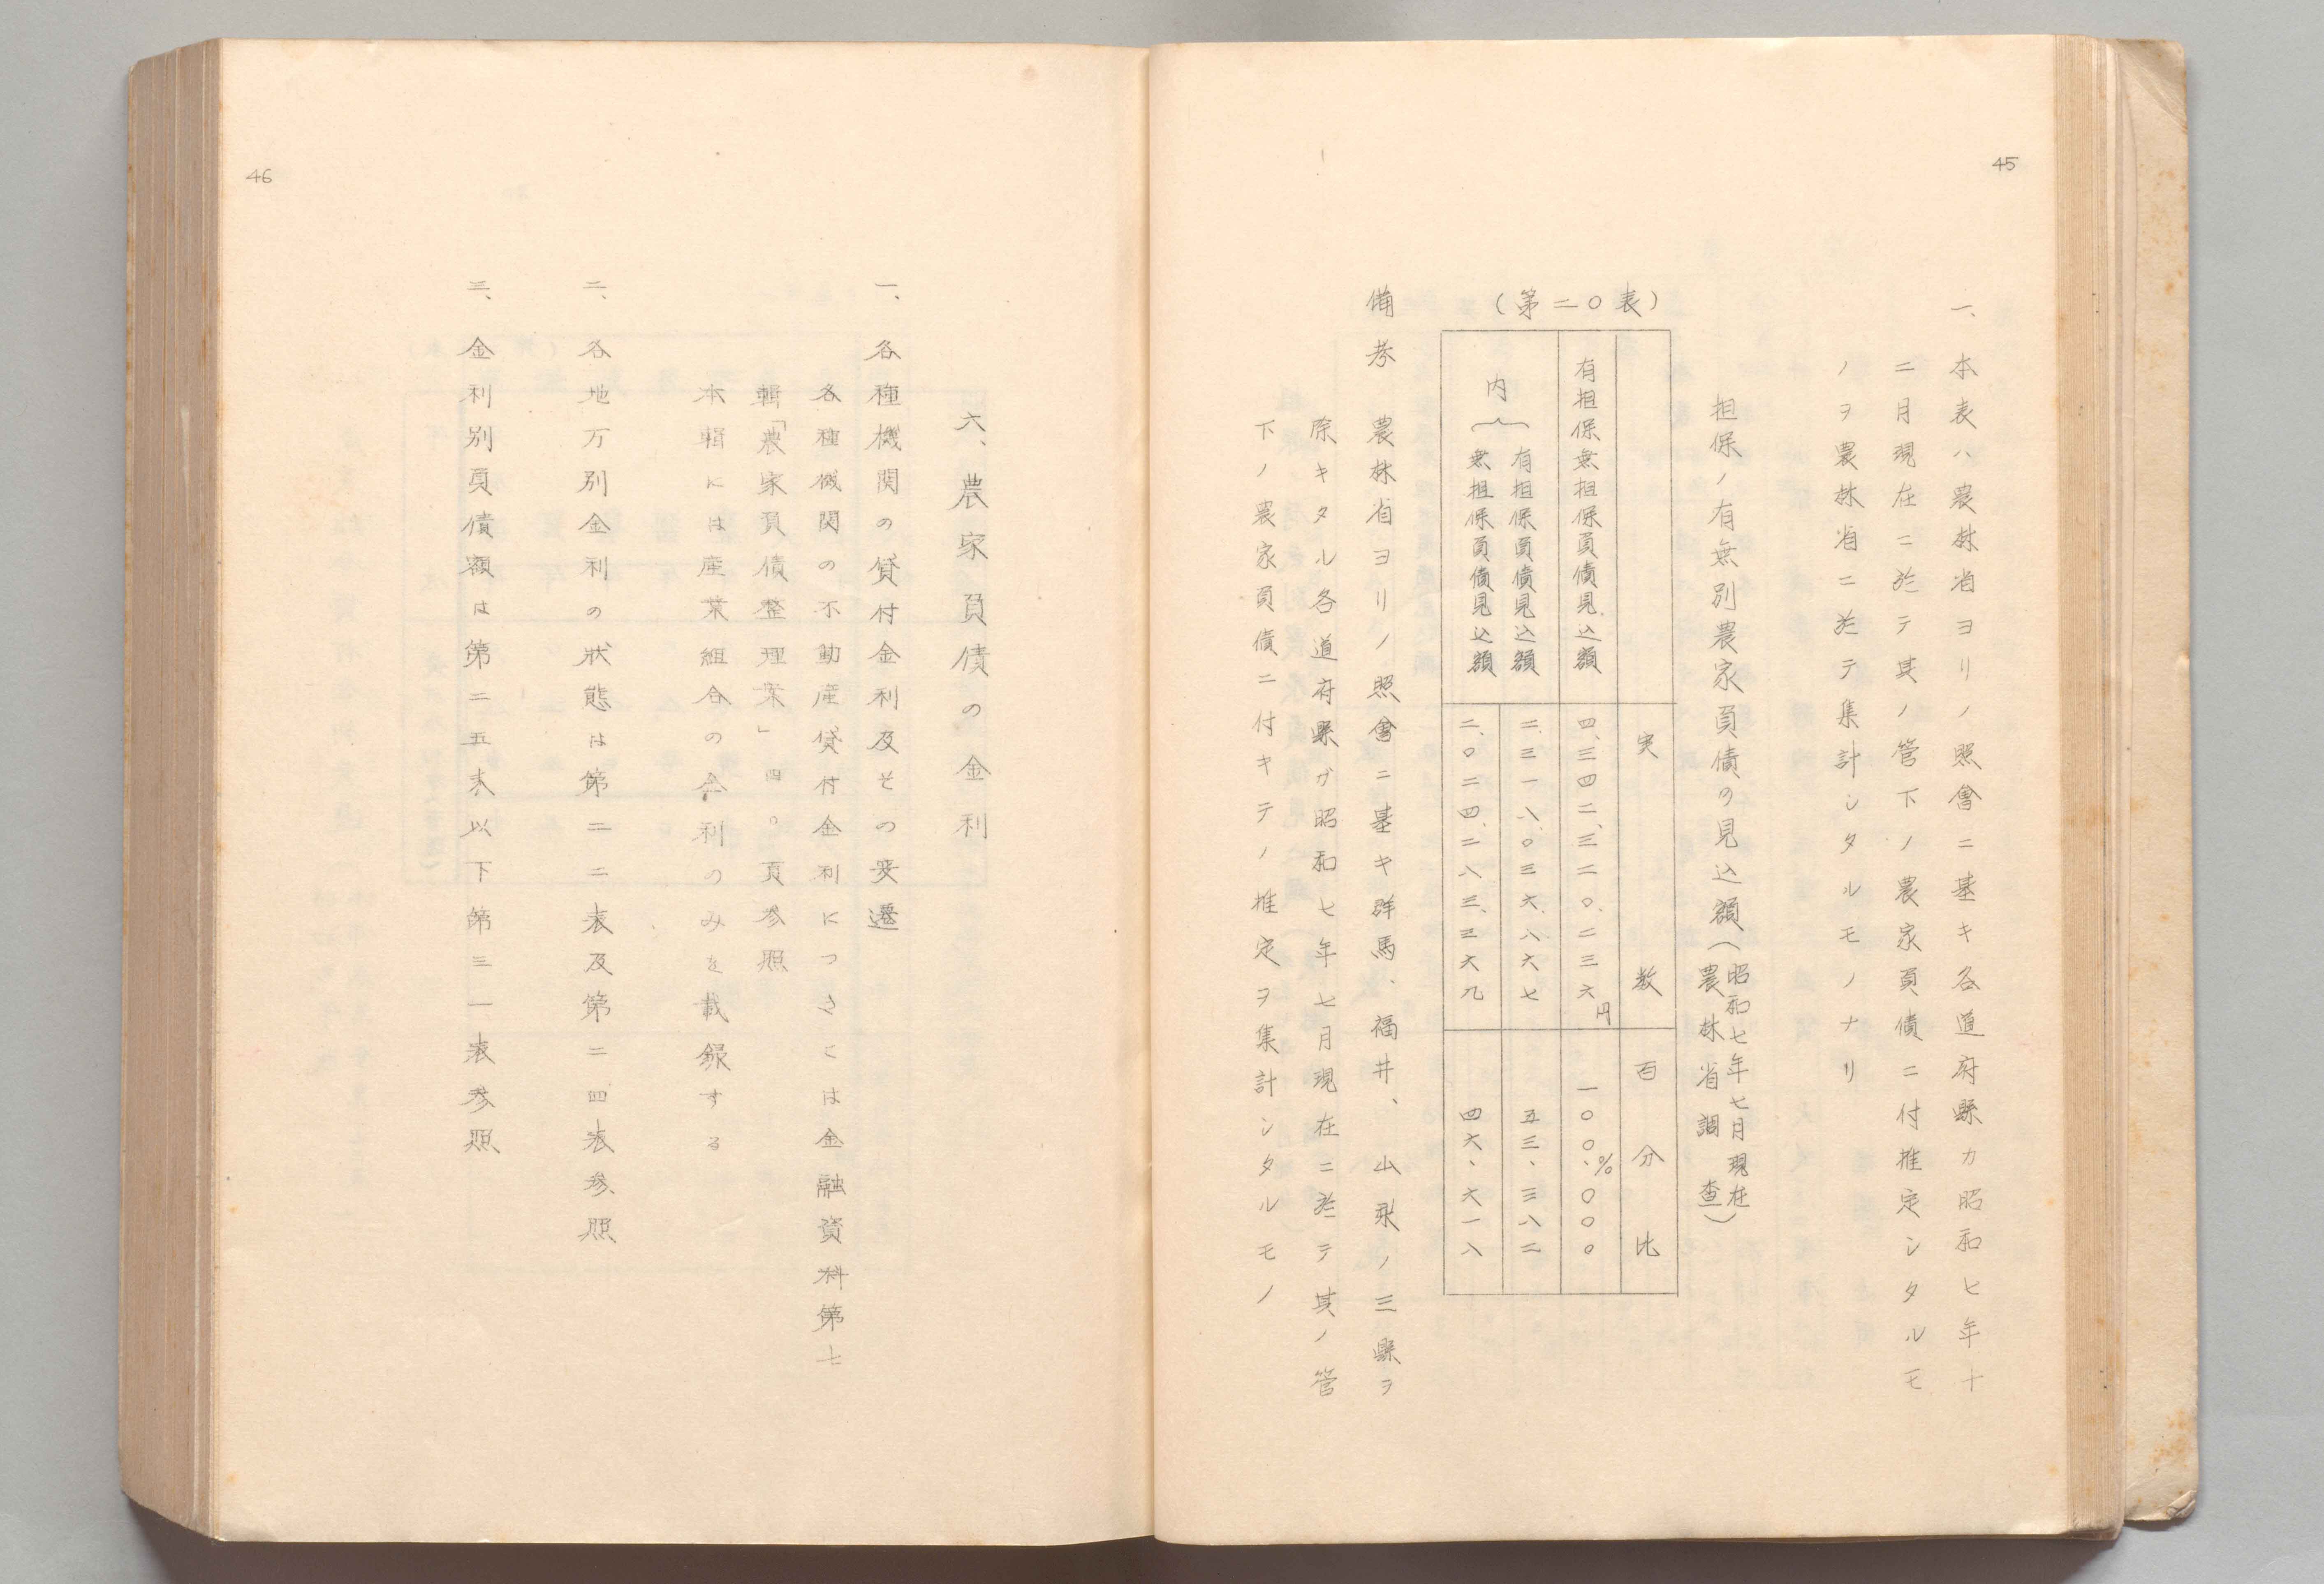 45
一、本表ハ農林省ヨリノ照會ニ基キ各道府縣カ昭和七年十
二月現在ニ於テ其ノ管下ノ農家負債ニ付推定シタルモ
ノヲ農林省ニ於テ集計シタルモノナリ
担保ノ有無別農家負債の見込額(昭和七年七月現在
農林省調査)
(第二〇表)
実数
百分比
有担保無担保負債見込額
四、三四二、三二〇、二三六円
一〇〇、%〇〇〇
内
有担保負債見込額
二、三一八、〇三六、八六七
五三、三八二
無担保負債見込額
二、〇二四、二八三、三六九
四六、六一八
備考 農林省ヨリノ照會ニ基キ群馬、福井、山梨ノ三縣ヲ
除キタル各道府縣ガ昭和七年七月現在ニ於テ其ノ管
下ノ農家負債ニ付キテノ推定ヲ集計シタルモノ
46
六、農家負債の金利
一、各種機関の貸付金利及その変遷
各種機関の不動産貸付金利につきては金融資料第七
輯「農家負債整理案」四〇頁参照
本輯には産業組合の金利のみを載録する
二、各地方別金利の狀態は第二二表及第二四表参照
三、金利別負債額は第二五表以下第三一表参照